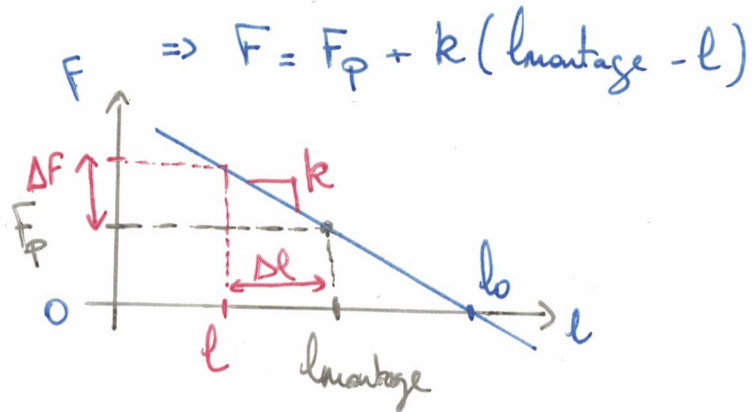 ⇒ F = Fp + k (lmontage - l)
F
ΔF
k
Fp
Δl
l0
0
l
l
lmontage